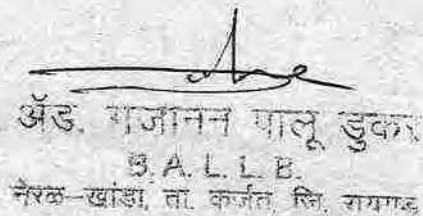 ॲड. गजानन पालू डुकरे
B. A. L. L. B.
नेरळ-खांडा, ता. कर्जत, जि. रायगड